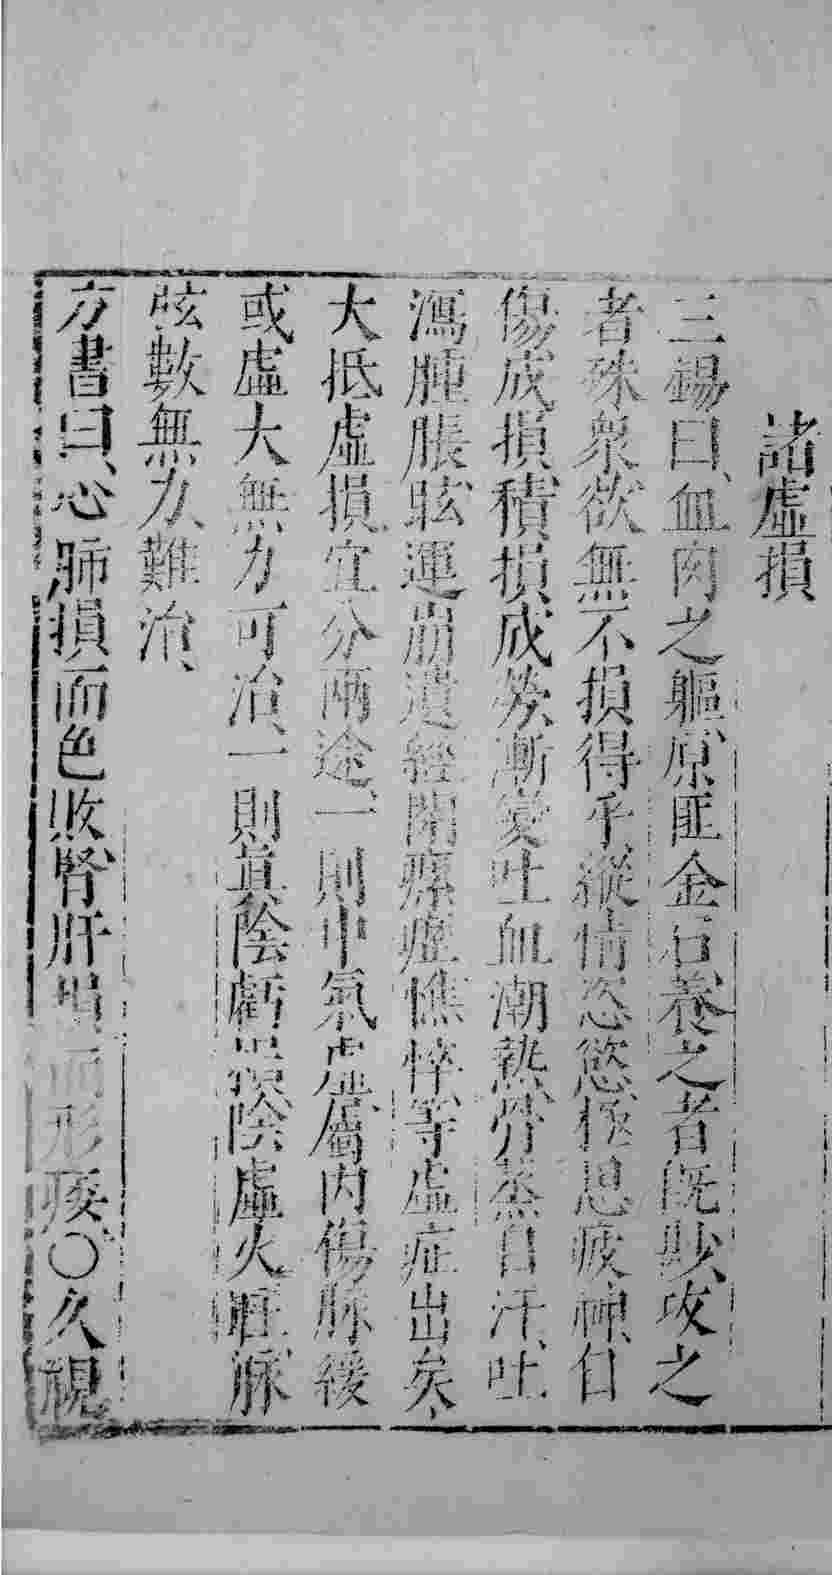 諸虛損
三錫曰、血肉之軀、原匪金石、養之者旣尠、攻之
者殊衆、欲無不損得乎、縱情恣慾、極思疲神、日
傷成損、積損成勞、漸變吐血潮熱、骨蒸自汗、吐
瀉腫脹、眩運崩遺、經閉瘰癧、憔悴等虛症出矣、
大抵虛損宜分兩途、一則中氣虛、屬內傷、脉緩
或虛大無力可治、一則眞陰虧損、陰虛火旺、脉
弦數無力、難治、
方書曰、心肺損而色敗、腎肝損而形痿、○久視